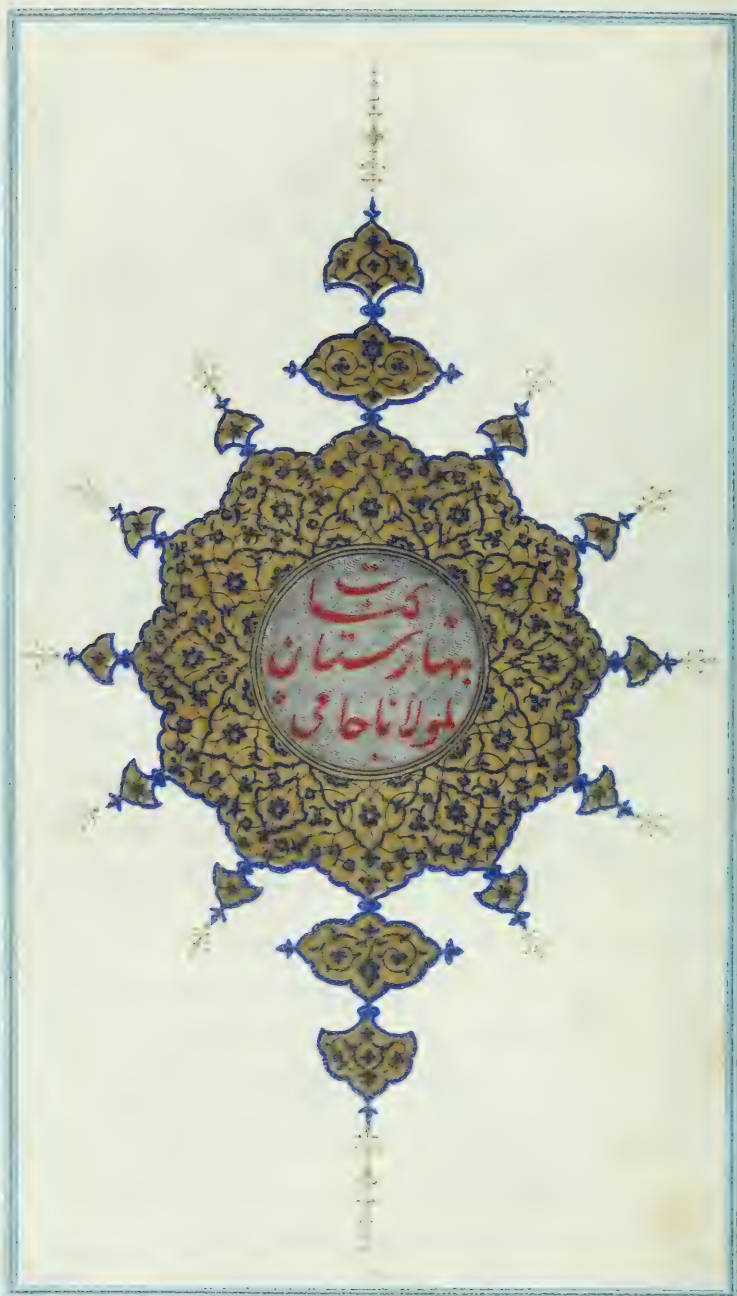 کتاب
بهارستان
لمولانا جامی